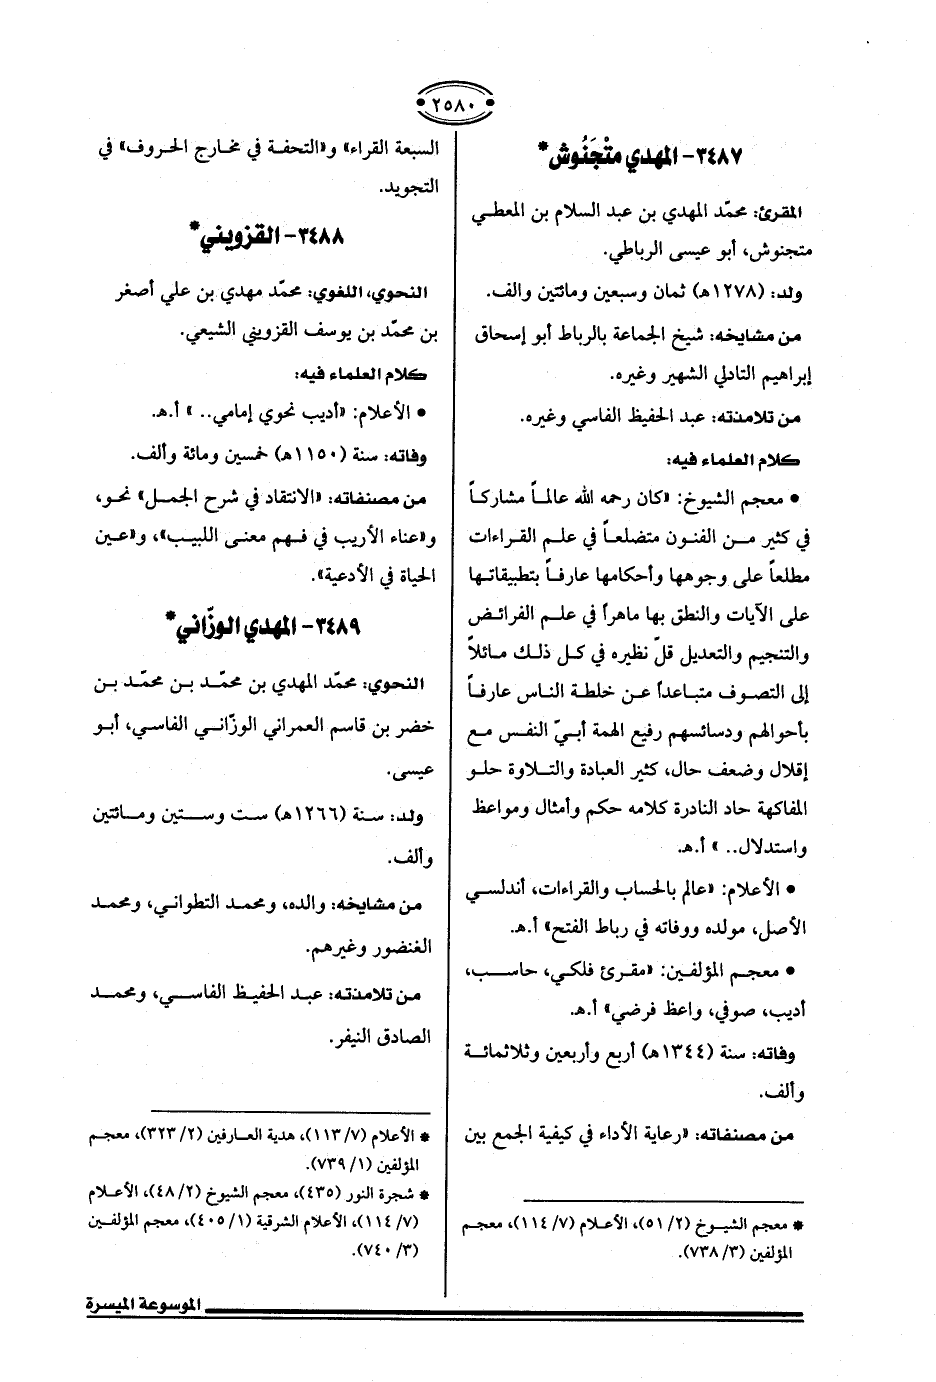 ٢٥٨٠
٣٤٨٧- المهدي متْجَنُوش*
المقرئ: محمّد المهدي بن عبد السلام بن المعطي
متجنوش، أبو عيسى الرباطي.
ولد: (١٢٧٨هـ) ثمان وسبعين ومائتين والف.
من مشايخه: شيخ الجماعة بالرباط أبو إسحاق
إبراهيم التادلي الشهير وغيره.
من تلامذته: عبد الحفيظ الفاسي وغيره.
كلام العلماء فيه:
• معجم الشيوخ: «كان رحمه الله عالماً مشاركاً
في كثير من الفنون متضلعاً في علم القراءات
مطلعاً على وجوهها وأحكامها عارفاً بتطبيقاتها
على الآيات والنطق بها ماهراً في علم الفرائض
والتنجيم والتعديل قلّ نظيره في كل ذلك مائلاً
إلى التصوف متباعداً عن خلطة الناس عارفاً
بأحوالهم ودسائسهم رفيع الهمة أبيّ النفس مع
إقلال وضعف حال، كثير العبادة والتلاوة حلو
المفاكهة حاد النادرة كلامه حكم وأمثال ومواعظ
واستدلال.. » أ.هـ.
• الأعلام: «عالم بالحساب والقراءات، أندلسي
الأصل، مولده ووفاته في رباط الفتح» أ.هـ.
• معجم المؤلفين: «مقرئ فلكي، حاسب،
أديب، صوفي، واعظ فرضي» أ.هـ.
وفاته: سنة (١٣٤٤هـ) أربع وأربعين وثلاثمائة
وألف.
من مصنفاته: «رعاية الأداء في كيفية الجمع بين
* معجم الشيوخ (٥١/٢)، الأعلام (١١٤/٧)، معجم
المؤلفين (٧٣٨/٣).
السبعة القراء» و«التحفة في مخارج الحروف» في
التجويد.
٣٤٨٨- القزويني*
النحوي، اللغوي: محمّد مهدي بن علي أصغر
بن محمّد بن يوسف القزويني الشيعي.
كلام العلماء فيه:
• الأعلام: «أديب نحوي إمامي.. » أ.هـ.
وفاته: سنة (١١٥٠هـ) خمسين ومائة وألف.
من مصنفاته: «الانتقاد في شرح الجمل» نحو،
و«عناء الأريب في فهم معنى اللبيب»، و«عين
الحياة في الأدعية».
٣٤٨٩- المهدي الوزّاني*
النحوي: محمّد المهدي بن محمّد بن محمّد بن
خضر بن قاسم العمراني الوزّاني الفاسي، أبو
عيسى.
ولد: سنة (١٢٦٦هـ) ست وستين ومائتين
وألف.
من مشايخه: والده، ومحمد التطواني، ومحمد
الغنضور وغيرهم.
من تلامذته: عبد الحفيظ الفاسي، ومحمد
الصادق النيفر.
* الأعلام (١١٣/٧)، هدية العارفين (٣٢٣/٢)، معجم
المؤلفين (٧٣٩/١).
* شجرة النور (٤٣٥)، معجم الشيوخ (٤٨/٢)، الأعلام
(١١٤/٧)، الأعلام الشرقية (٤٠٥/١)، معجم المؤلفين
(٧٤٠/٣).
الموسوعة الميسرة